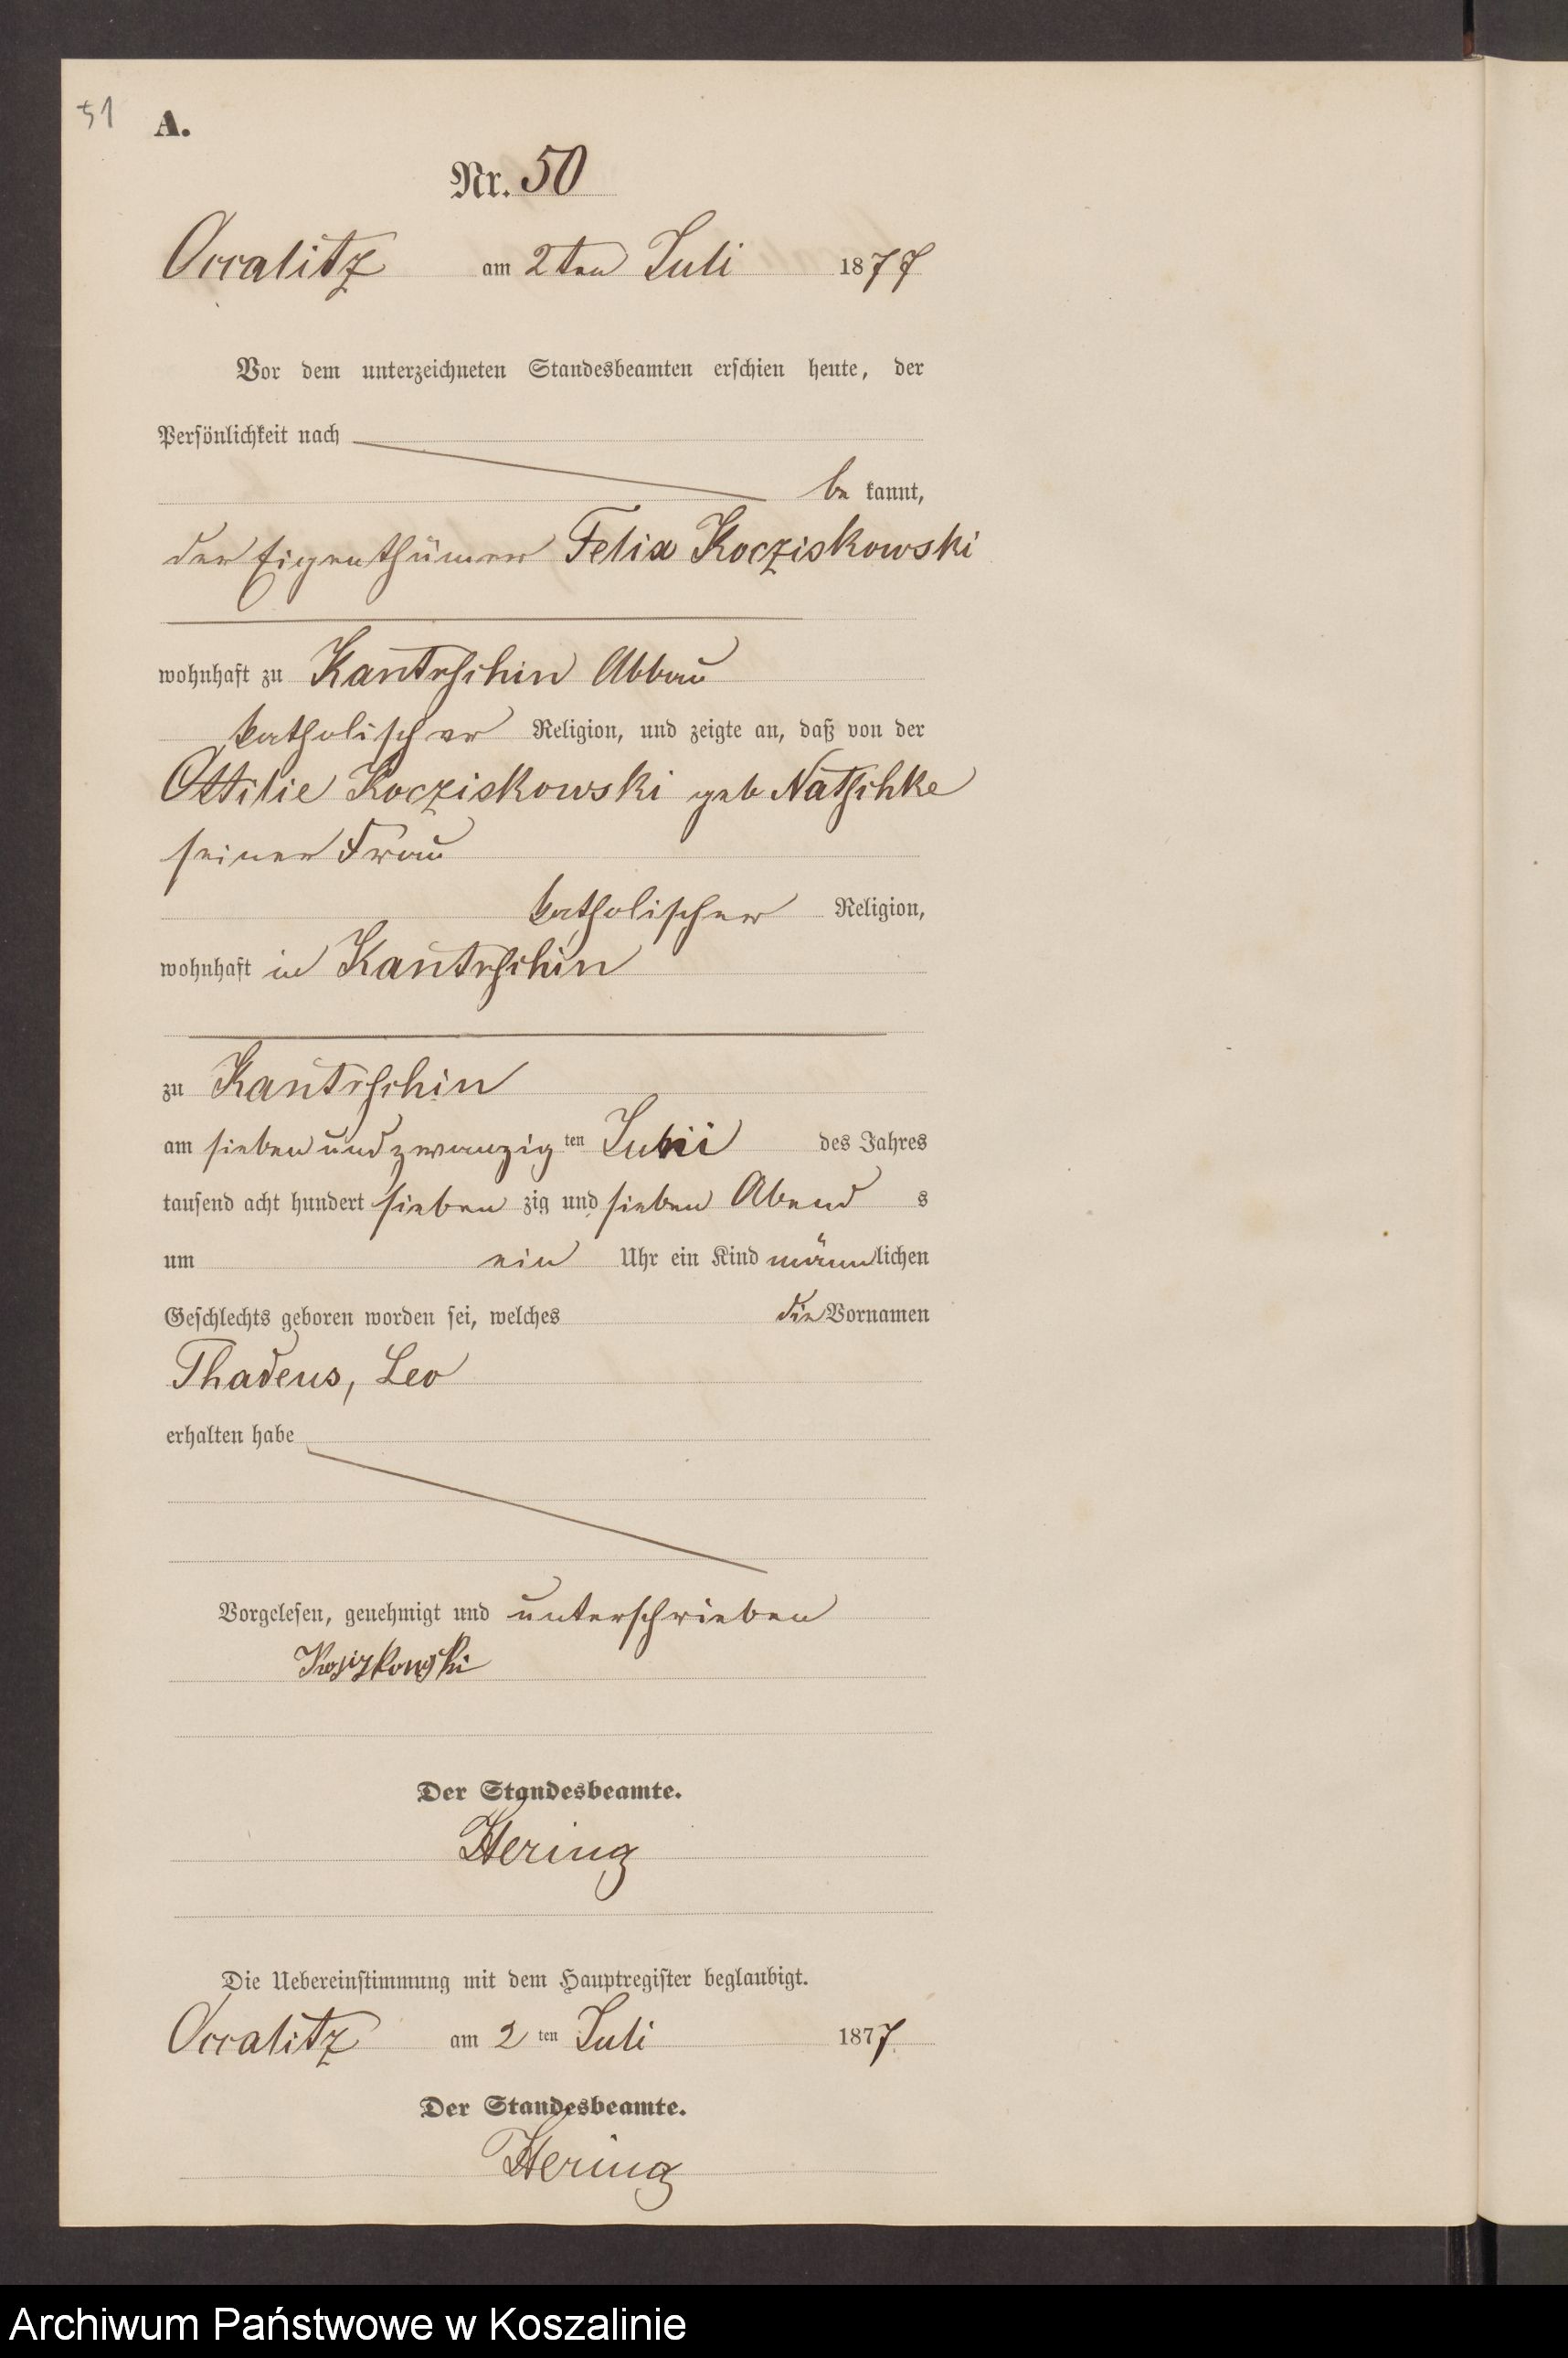 51
A.
Nr. 50
Occalitz am 2ten Juli 1877
Vor dem unterzeichneten Standesbeamten erschien heute, der
Persönlichkeit nach
be kannt,
der Eigenthümer Felix Kocziskowski
wohnhaft zu Kantrschin Abbau
katholischer Religion, und zeigte an, daß von der
Ottilie Kocziskowski geb Natschke
seiner Frau
katholischer Religion,
wohnhaft in Kantrschin
zu Kantrschin
am sieben und zwanzig ten des Jahres
tausend acht hundert sieben zig und sieben Abend s
um ein Uhr ein Kind männlichen
Geschlechts geboren worden sei, welches die Vornamen
Thadeus, Leo
erhalten habe
Vorgelesen, genehmigt und unterschrieben
Der Standesbeamte.
Hering
Die Uebereinstimmung mit dem Hauptregister beglaubigt.
Occalitz am 2 ten Juli 1877
Der Standesbeamte.
Hering
Archiwum Państwowe w Koszalinie